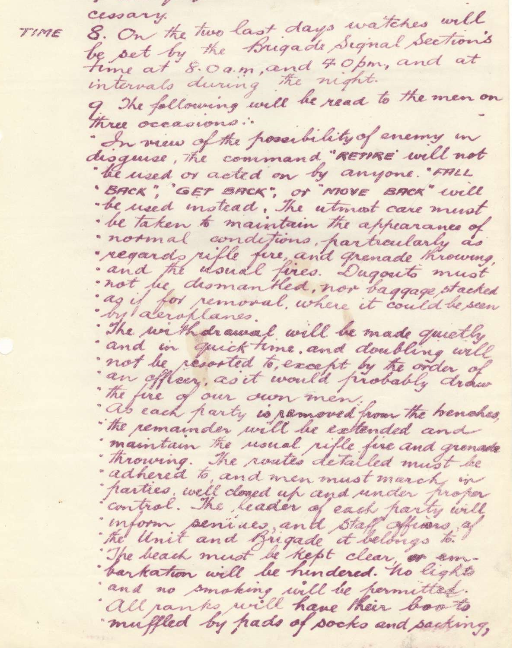 cessary.
TIME 8. On the two last days watches will
be set by the Brigade Signal Section's
time at 8.0 a.m, and 4.0 pm, and at
intervals during the night.
9 The following will be read to the men on
three occasions:-
"In view of the possibility of enemy in
disguise, the command "RETIRE" will not
"be used or acted on by anyone. "FALL
"BACK", "GET BACK", or "MOVE BACK" will
"be used instead. The utmost care must
"be taken to maintain the appearance of
"normal conditions, particularly as
"regards rifle fire, and grenade throwing,
"and the usual fires. Dugouts must
"not be dismantled, nor baggage stacked
"as if for removal, where it could be seen
"by aeroplanes.
"The withdrawal will be made quietly
"and in quick time, and doubling will
"not be resorted to, except by the order of
"an officer, as it would probably draw
"the fire of our own men.
"As each party is removed from the trenches,
"the remainder will be extended and
"maintain the usual rifle fire and grenade
"throwing. The routes detailed must be
"adhered to, and men must march in
"parties, well closed up and under proper
"control. The leader of each party will
"inform sentries, and staff officers, of
"the Unit and Brigade it belongs to.
"The beach must be kept clear, or em-
"barkation will be hindered. No lights
"and no smoking will be permitted.
"All ranks will have their boots
"muffled by pads of socks and sacking,